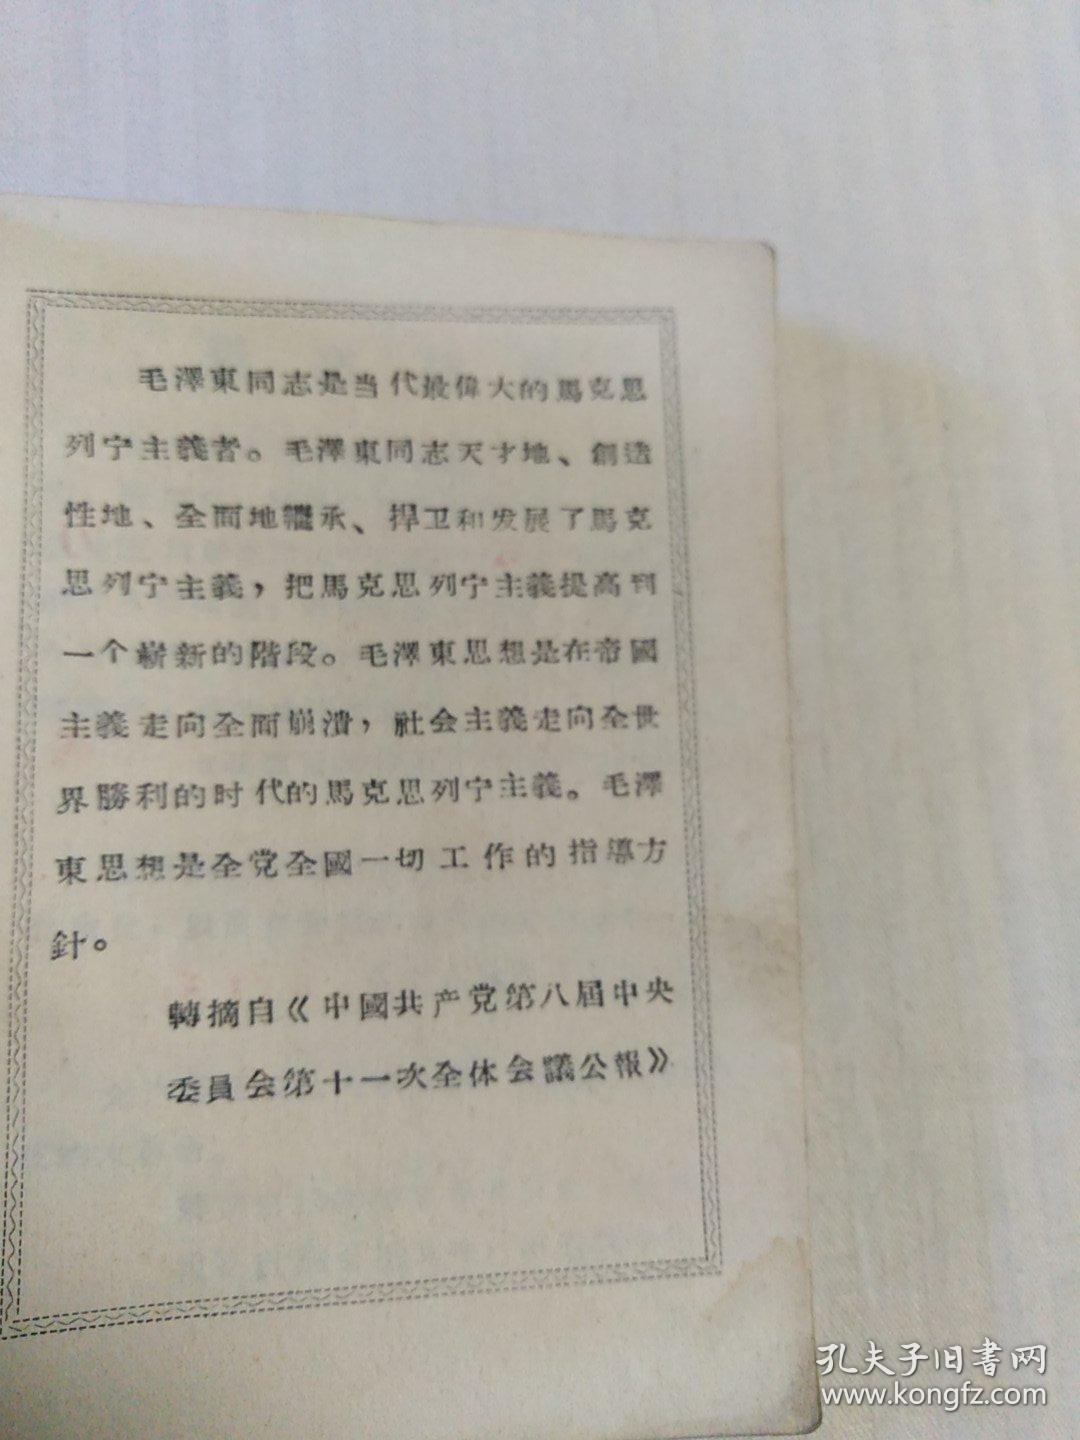 毛澤東同志是当代最偉大的馬克思
列宁主義者。毛澤東同志天才地、創造
性地、全面地繼承、捍卫和发展了馬克
思列宁主義，把馬克思列宁主義提高到
一个嶄新的階段。毛澤東思想是在帝國
主義走向全面崩潰，社会主義走向全世
界勝利的时代的馬克思列宁主義。毛澤
東思想是全党全國一切工作的指導方
針。
轉摘自《中國共产党第八届中央
委員会第十一次全体会議公報》
孔夫子旧書网
www.kongfz.com